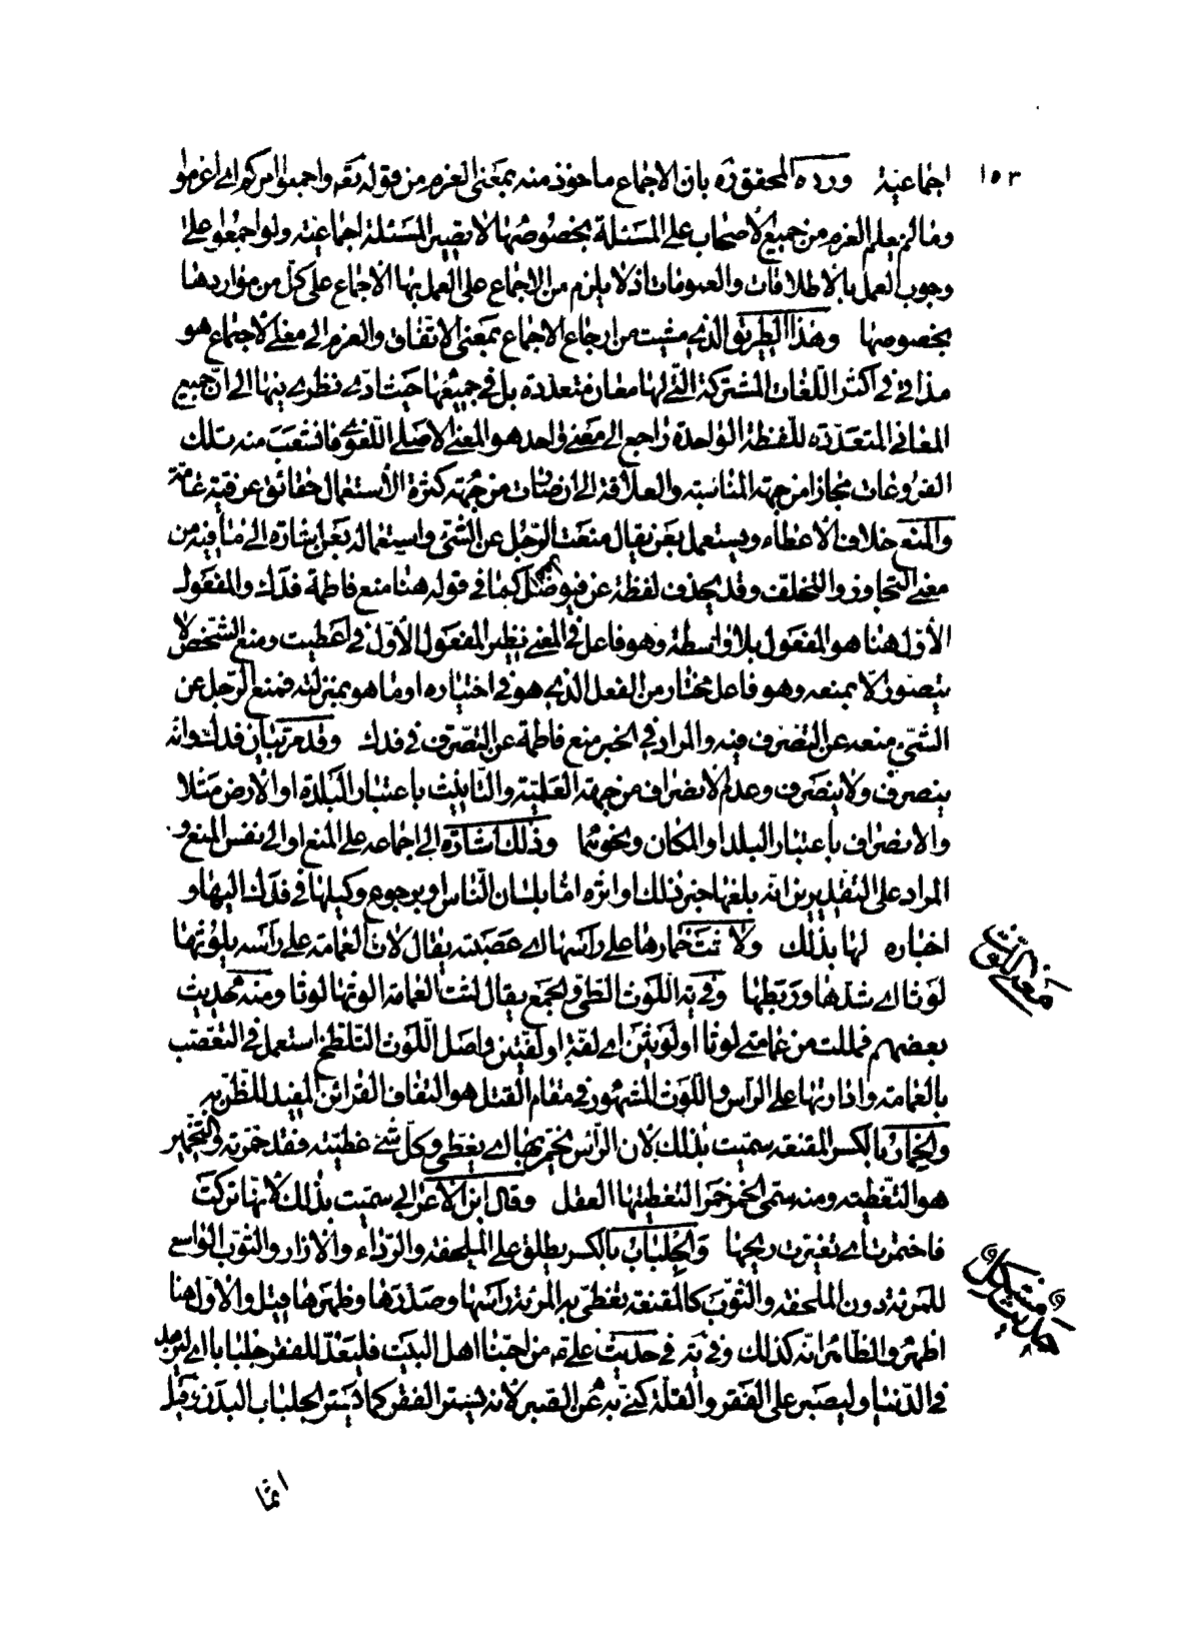 ١٥٣
اجماعية ورده المحقق ره بان الاجماع ماخوذ منه بمعنى العزم من قوله تعه واجمعوا امركم اى اعزموا
وما لم يعلم العزم من جميع الأصحاب على المسئلة بخصوصها لا تصير المسئلة اجماعية ولو اجمعوا على
وجوب العمل بالاطلاقات والعمومات اذ لا يلزم من الاجماع على العمل بها الاجماع على كل من مواردها
بخصوصها وهذا الطريق الذى مشيت من ارجاع الاجماع بمعنى الاتفاق والعزم الى معنى الاجتماع هو
مذاقى فى اكثر اللغات المشتركة التى لها معان متعددة بل فى جميعها حيث ادى نظرى فيها الى ان جميع
المعانى المتعددة للفظة الواحدة راجع الى معنى واحد هو المعنى الاصلى اللغوى فانشعب منه تلك
الفروعات مجازا من جهة المناسبة والعلاقة الى ان صارت من جهة كثرة الأستعمال حقائق عرفية عامة
والمنع خلاف الأعطاء ويستعمل بعن يقال منعت الرجل عن الشئ واستعماله بعن اشارة الى ما فيه من
معنى التجاوز والتخلف وقد يحذف لفظة عن فيوصل كما فى قوله هنا منع فاطمة فدك والمفعول
الأول هنا هو المفعول بلا واسطة وهو فاعل فى المعنى نظير المفعول الأول فى اعطيت ومنع الشخص لا
يتصور الا بمنعه وهو فاعل مختار من الفعل الذى هو فى اختياره او ما هو بمنزلته فمنع الرجل عن
الشئ منعه عن التصرف فيه والمراد فى الخبر منع فاطمة عن التصرف فى فدك وقد مر بيان فدك وانه
ينصرف ولا ينصرف وعدم الانصراف من جهة العلمية والتانيث باعتبار البلدة او الأرض مثلا
والانصراف باعتبار البلد او المكان ونحوهما وذلك اشارة الى اجماعه على المنع او الى نفس المنع و
المراد على التقديرين انه بلغها خبر ذلك او اثره اما بلسان الناس او برجوع وكيلها فى فدك اليها و
اخباره لها بذلك ولاثت خمارها على رأسها اى عصبته يقال لاث العمامة على رأسه يلوثها
لوثا اى شدها وربطها وفى يه اللوث الطى والجمع يقال لثت العمامة الوثها لوثا ومنه حديث
بعضهم فحللت من عمامتى لوثا او لوثين اى لفة او لفتين واصل اللوث التلطخ استعمل فى التعصب
بالعمامة وادارتها على الرأس واللوث المشهور فى مقام القتل هو التفاف القرائن المفيد للظن به
والخمار بالكسر المقنعة سميت بذلك لان الرأس يخمر بها اى يغطى وكل شئ غطيته فقد خمرته والتخمير
هو التغطية ومنه سمى الخمر خمرا لتغطيتها العقل وقال ابن الاعرابى سميت بذلك لانها تركت
فاختمرت اى تغيرت ريحها والجلباب بالكسر يطلق على الملحفة والرداء والازار والثوب الواسع
للمرئة دون الملحفة والثوب كالمقنعة تغطى به المرئة رأسها وصدرها وظهرها قيل والاول هنا
اظهر والظاهر انه كذلك وفى يه فى حديث على ع من احبنا اهل البيت فليعد للفقر جلبابا اى ليزهد
فى الدنيا وليصبر على الفقر والقلة كنى به عن الصبر لانه يستر الفقر كما يستر الجلباب البدن وقيل
معنى اللوث
حديث مشكل
انما